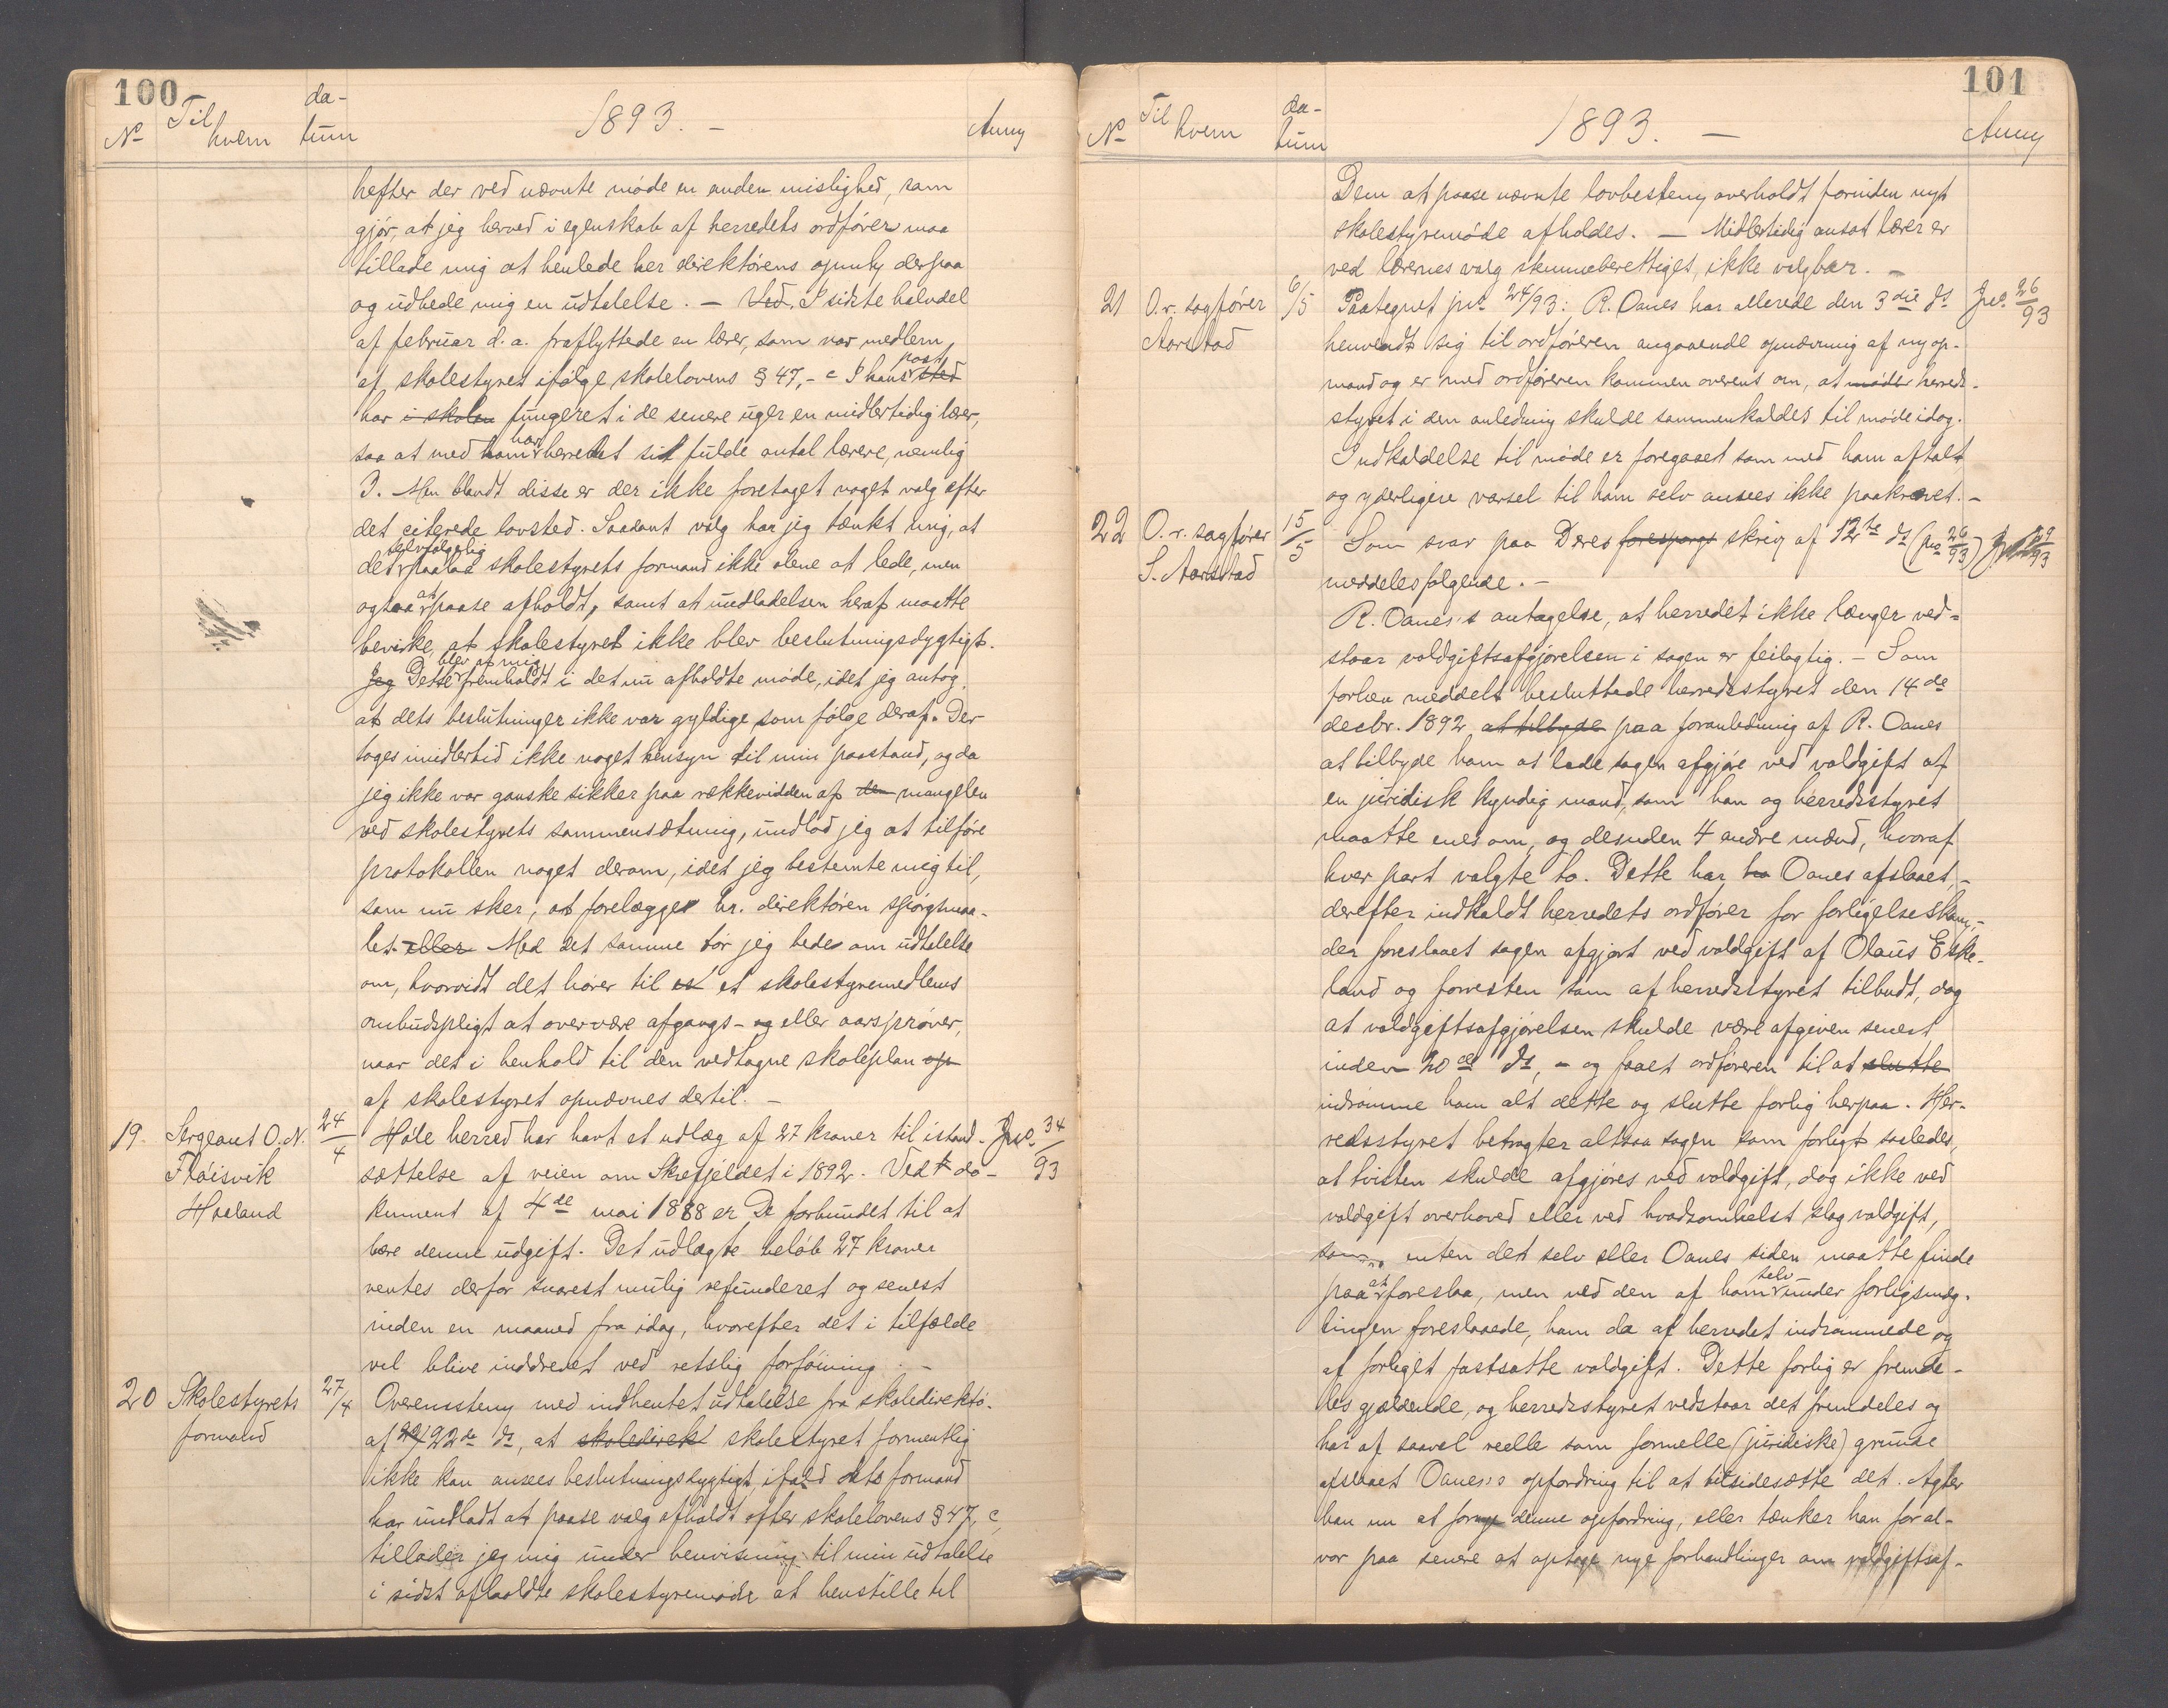 100
No Til hvem da-tum 1893. – Anm
hefter der ved nævnte møde en anden mislighed, som
gjør, at jeg herved i egenskab af herredets ordfører maa
tillade mig at henlede hr direktørens opmkh derpaa
og udbede mig en udtalelse. – Ved. I sidste halvdel
af februar d. a. fraflyttede en lærer, som var medlem
af skolestyret ifølge skolelovens § 47,- c I hans post sted
har i skolen fungeret i de senere uger en midlertidig lærer,
saa at med ham har herredet sit fulde antal lærere, nemlig
3. Men blandt disse er der ikke foretaget noget valg efter
det citerede lovsted. Saadant valg har jeg tænkt mig, at
det selvfølgelig paalaa skolestyrets formand ikke alene at lede, men
ogsaa at paase afholdt, samt at undladelsen heraf maatte
bevirke, at skolestyret ikke blev beslutningsdygtigt.
Jeg Dette blev af mig fremholdt i det nu afholdte møde, idet jeg antog,
at dets beslutninger ikke var gyldige som følge deraf. Der
toges imidlertid ikke noget hensyn til min paastand, og da
jeg ikke var ganske sikker paa rækkevidden af den mangelen
ved skolestyrets sammensætning, undlod jeg at tilføre
protokollen noget derom, idet jeg bestemte mig til,
som nu sker, at forelægge hr. direktøren spørgsmaa-
let. eller Med det samme tør jeg bede om udtalelse
om, hvorvidt det hører til et et skolestyremedlems
ombudspligt at overvære afgangs- og eller aarsprøver,
naar det i henhold til den vedtagne skoleplan op
af skolestyret opnævnes dertil. –
19. Sergeant O. N. Fløisvik Høeland 24/4 Høle herred har havt et udlæg af 27 kroner til istand- Jno. 34/93
sættelse af veien om Skrefjeldet i 1892. Ved do-
kument af 4de mai 1888 er De forbundet til at
bære denne udgift. Det udlagte beløb 27 kroner
ventes derfor snarest mulig refunderet og senest
inden en maaned fra idag, hvorefter det i tilfælde
vil blive inddrevet ved retslig forføining. –
20 Skolestyrets formand 27/4 Overensstemg med indhentet udtalelse fra skoledirektø.
af 22de ds, at skoledirek skolestyret formentlig
ikke kan ansees beslutningsdygtigt, ifald dets formand
har undladt at paase valg afholdt efter skolelovens § 47, c,
tillader jeg mig under henvisning til min udtalelse
i sidst afholdte skolestyremøde at henstille til
101
No Til hvem da-tum 1893. – Anm
Dem at paase nævnte lovbestemg overholdt forinden nyt
skolestyremøde afholdes. – Midlertidig ansat lærer er
ved lærernes valg stemmeberettiget, ikke valgbar. –
21 O.r. sagfører Aarstad 6/5 Paategnet jno 24/93: R. Oanes har allerede den 3die ds Jno. 26/93
henvendt sig til ordføreren angaaende opnævning af ny op-
mand og er med ordføreren kommen overens om, at møder herreds-
styret i den anledning skulde sammenkaldes til møde idag.
Indkaldelse til møde er foregaaet som med ham aftalt
og yderligere varsel til ham selv ansees ikke paakrævet. –
22 O.r. sagfører S. Aarstad 15/5 Som svar paa Deres forespørgs skriv af 12te ds (jno 26/93)
meddeles følgende. –
R. Oanes's antagelse, at herredet ikke længer ved-
staar voldgiftsafgjørelsen i sagen er feilagtig. – Som
forhen meddelt besluttede herredsstyret den 14de
decbr. 1892 at tilbyde paa foranledning af R. Oanes
at tilbyde ham at lade sagen afgjøre ved voldgift af
en juridisk kyndig mand, som han og herredsstyret
maatte enes om, og desuden 4 andre mænd, hvoraf
hver part valgte to. Dette har ha Oanes afslaaet, –
derefter indkaldt herredets ordfører for forligelseskomm.,
der foreslaaet sagen afgjort ved voldgift af Olaus Eske-
land og forresten som af herredsstyret tilbudt, dog
at voldgiftsafgjørelsen skulde være afgiven senest
inden 20de ds, – og faaet ordføreren til at slutte
indrømme ham alt dette og slutte forlig herpaa. Her-
redsstyret betragter altsaa sagen som forligt saaledes,
at tvisten skulde afgjøres ved voldgift, dog ikke ved
voldgift overhoved eller ved hvadsomhelst slag voldgift,
som enten det selv eller Oanes siden maatte finde
paa at foreslaa, men ved den af ham selv under forligsmæg-
lingen foreslaaede, ham da af herredet indrømmede og
af forliget fastsatte voldgift. Dette forlig er fremde-
les gjældende, og herredsstyret vedstaar det fremdeles og
har af saavel reelle som formelle (juridiske) grunde
afslaaet Oanes's opfordring til at tilsidesætte det. Agter
han nu at forny denne opfordring, eller tænker han for al-
vor paa senere at optage nye forhandlinger om voldgiftsaf-